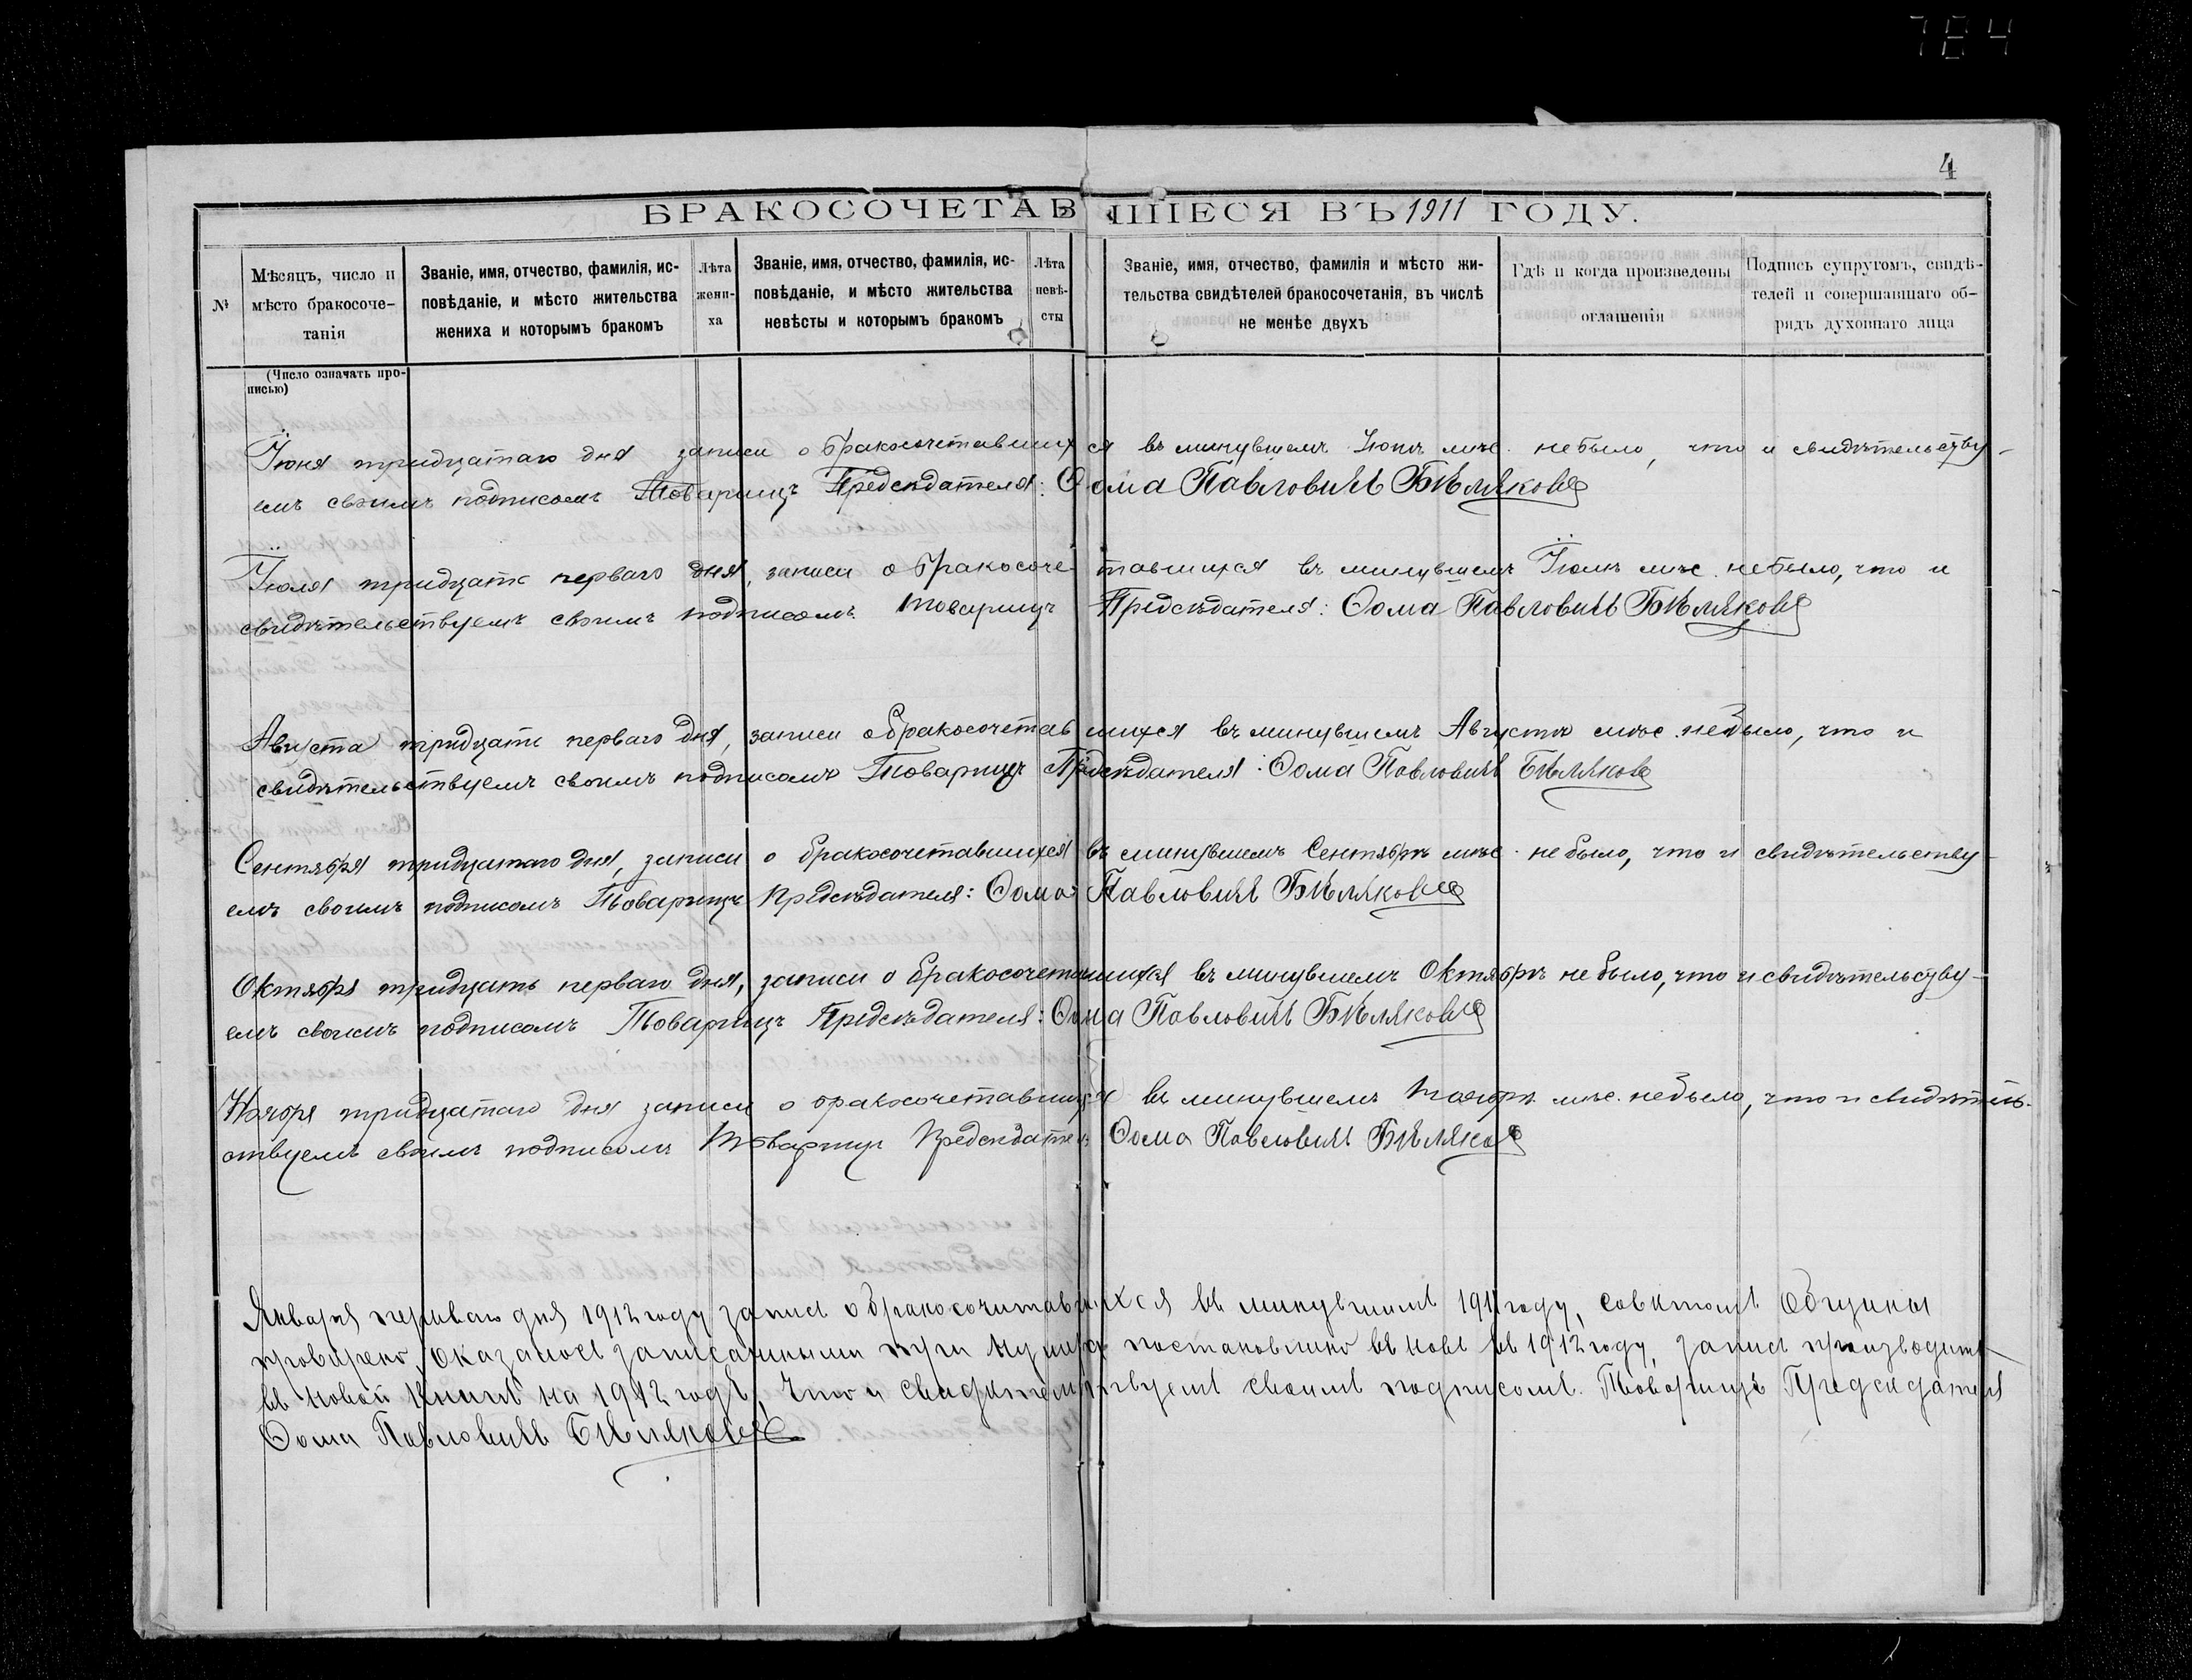 784
4
БРАКОСОЧЕТАВШІЕСЯ ВЪ 1911 ГОДУ.
№
Мѣсяцъ, число и
мѣсто бракосоче-
танія
Званіе, имя, отчество, фамилія, ис-
повѣданіе, и мѣсто жительства
жениха и которымъ бракомъ
Лѣта
жени-
ха
Званіе, имя, отчество, фамилія, ис-
повѣданіе, и мѣсто жительства
невѣсты и которымъ бракомъ
Лѣта
невѣ-
сты
Званіе, имя, отчество, фамилія и мѣсто жи-
тельства свидѣтелей бракосочетанія, въ числѣ
не менѣе двухъ
Гдѣ и когда произведены
оглашенія
Подпись супруговъ, свидѣ-
телей и совершавшаго об-
рядъ духовнаго лица
(Число означать про-
писью)
Іюня тридцатаго дня записи о бракосочетавшихся въ минувшемъ Іюнѣ мѣс. небыло, что и свидѣтельству-
емъ своимъ подписомъ Товарищъ Предсѣдателя: Ѳома Павловичъ Бѣляковъ
Іюля тридцать перваго дня, записи о бракосочетавшихся въ минувшемъ Іюлѣ мѣс. небыло, что и
свидѣтельствуемъ своимъ подписомъ Товарищъ Предсѣдателя: Ѳома Павловичъ Бѣляковъ
Августа тридцать перваго дня, записи о бракосочетавшихся въ минувшемъ Августѣ мѣс. небыло, что и
свидѣтельствуемъ своимъ подписомъ Товарищъ Прдсѣдателя: Ѳома Павловичъ Бѣляковъ
Сентября тридцатаго дня, записи о бракосочетавшихся въ минувшемъ Сентябрѣ мѣс. небыло, что и свидѣтельству-
емъ своимъ подписомъ Товарищъ Предсѣдателя: Ѳома Павловичъ Бѣляковъ
Октября тридцать перваго дня, записи о бракосочетавшихся въ минувшемъ Октябрѣ небыло, что и свидѣтельству-
емъ своимъ подписомъ Товарищъ Предсѣдателя: Ѳома Павловичъ Бѣляковъ
Ноября тридцатаго дня записи о бракосочетавшихся въ минувшемъ Ноябрѣ мѣс. небыло, что и свидѣтель-
ствуемъ своимъ подписомъ Товарищъ Предсѣдателя Ѳома Павловичъ Бѣляковъ
Января перваго дня 1912 году запись о бракосочитавшихся въ минувшимъ 1911 году, совѣтомъ Общины
провѣрено, оказалось записанными постановлино въ новь въ 1912 году, запись производить
въ новой книгѣ на 1912 годъ, что и свидѣтельствуемъ своимъ подписомъ. Товарищъ Предсѣдателя
Ѳома Павловичъ Бѣляковъ